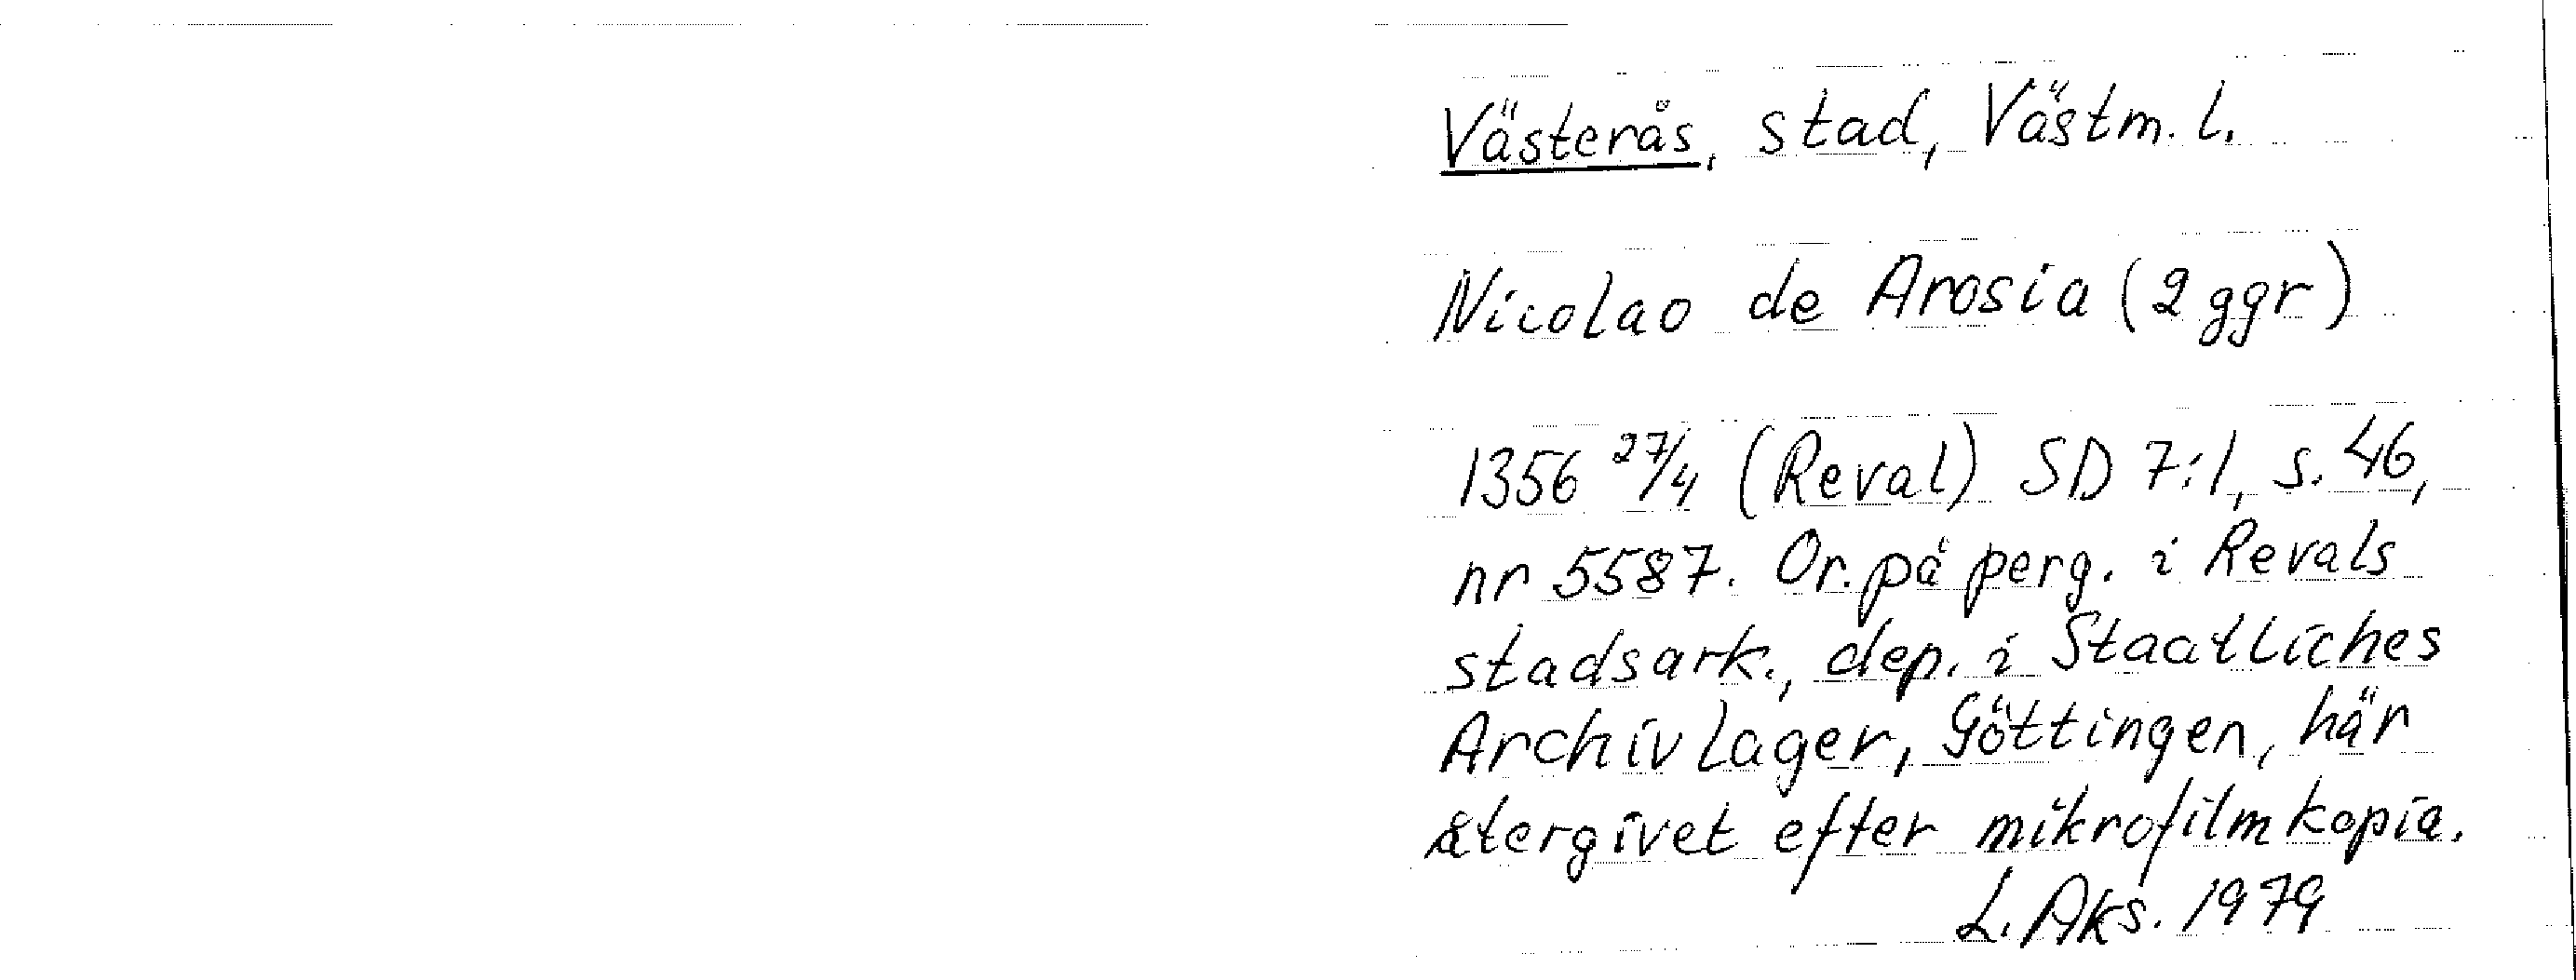 Västerås, stad, Västm. l.
Nicolao de Arosia (2 ggr)
1356 27/4 (Reval) SD 7:1, s. 46,
nr 5587. Or. på perg. i Revals
stadsark., dep. i Staatliches
Archivlager, Göttingen, här
återgivet efter mikrofilmkopia.
L. Aks. 1979